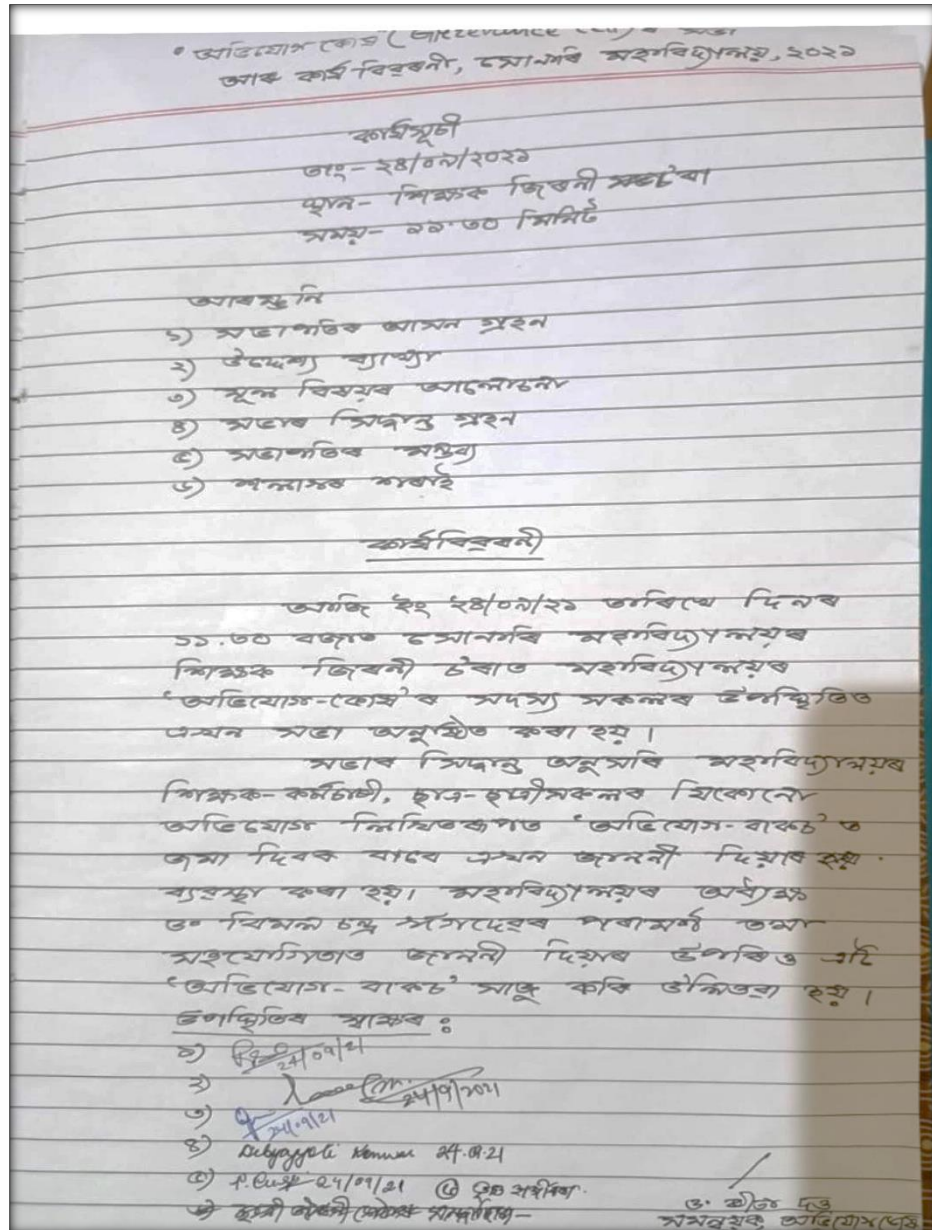 • অভিযোগ কোষ (Grievance Cell) ৰ সভা
আৰু কাৰ্য বিৱৰনী, সোনাৰি মহাবিদ্যালয়, ২০২১
কাৰ্যসূচী
তাং- ২৪/০৯/২০২১
স্থান- শিক্ষক জিৰনী চ'ৰা
সময়- ১১.৩০ মিনিট
আৰম্ভনি
১) সভাপতিৰ আসন গ্ৰহন
২) উদ্দেশ্য ব্যাখ্যা
৩) মূল বিষয়ৰ আলোচনা
৪) সভাৰ সিদ্ধান্ত গ্ৰহন
৫) সভাপতিৰ মন্তব্য
৬) শলাগৰ শৰাই
কাৰ্যবিৱৰনী
আজি ইং ২৪/০৯/২১ তাৰিখে দিনৰ
১১.৩০ বজাত সোনাৰি মহাবিদ্যালয়ৰ
শিক্ষক জিৰনী চ'ৰাত মহাবিদ্যালয়ৰ
'অভিযোগ-কোষ'ৰ সদস্য সকলৰ উপস্থিতিত
এখন সভা অনুষ্ঠিত কৰা হয়।
সভাৰ সিদ্ধান্ত অনুসৰি মহাবিদ্যালয়ৰ
শিক্ষক-কৰ্মচাৰী, ছাত্ৰ-ছাত্ৰীসকলৰ যিকোনো
অভিযোগ লিখিতৰূপত 'অভিযোগ-বাকচ' ত
জমা দিবৰ বাবে এখন জাননী দিয়াৰ হয়.
ব্যৱস্থা কৰা হয়। মহাবিদ্যালয়ৰ অধ্যক্ষ
ড০ বিমল চন্দ্ৰ গগৈদেৱৰ পৰামৰ্শ তথা
সহযোগিতাত জাননী দিয়াৰ উপৰিও এটি
'অভিযোগ-বাকচ' সাজু কৰি তোলাই হয়।
উপস্থিতিৰ স্বাক্ষৰ :
১) 24/09/21
২) 24/9/2021
৩) 24/9/21
৪) Dibyajyoti Konwar 24.09.21
৫) 24/09/21 ৬)
ড. দত্ত
সমন্বয়ক অভিযোগ কোষ